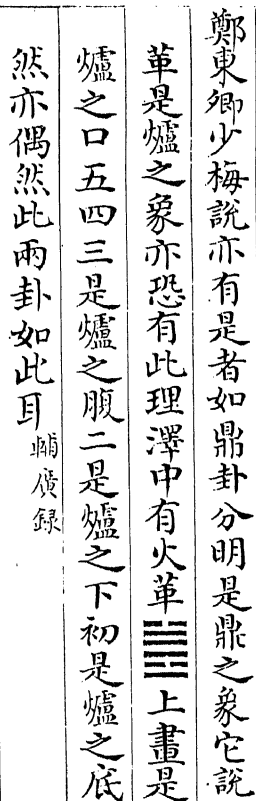 鄭東卿少梅說亦有是者如鼎卦分明是鼎之象它說
革是爐之象亦恐有此理澤中有火革䷰上畫是
爐之口五四三是爐之腹二是爐之下初是爐之底
然亦偶然此兩卦如此耳輔廣録